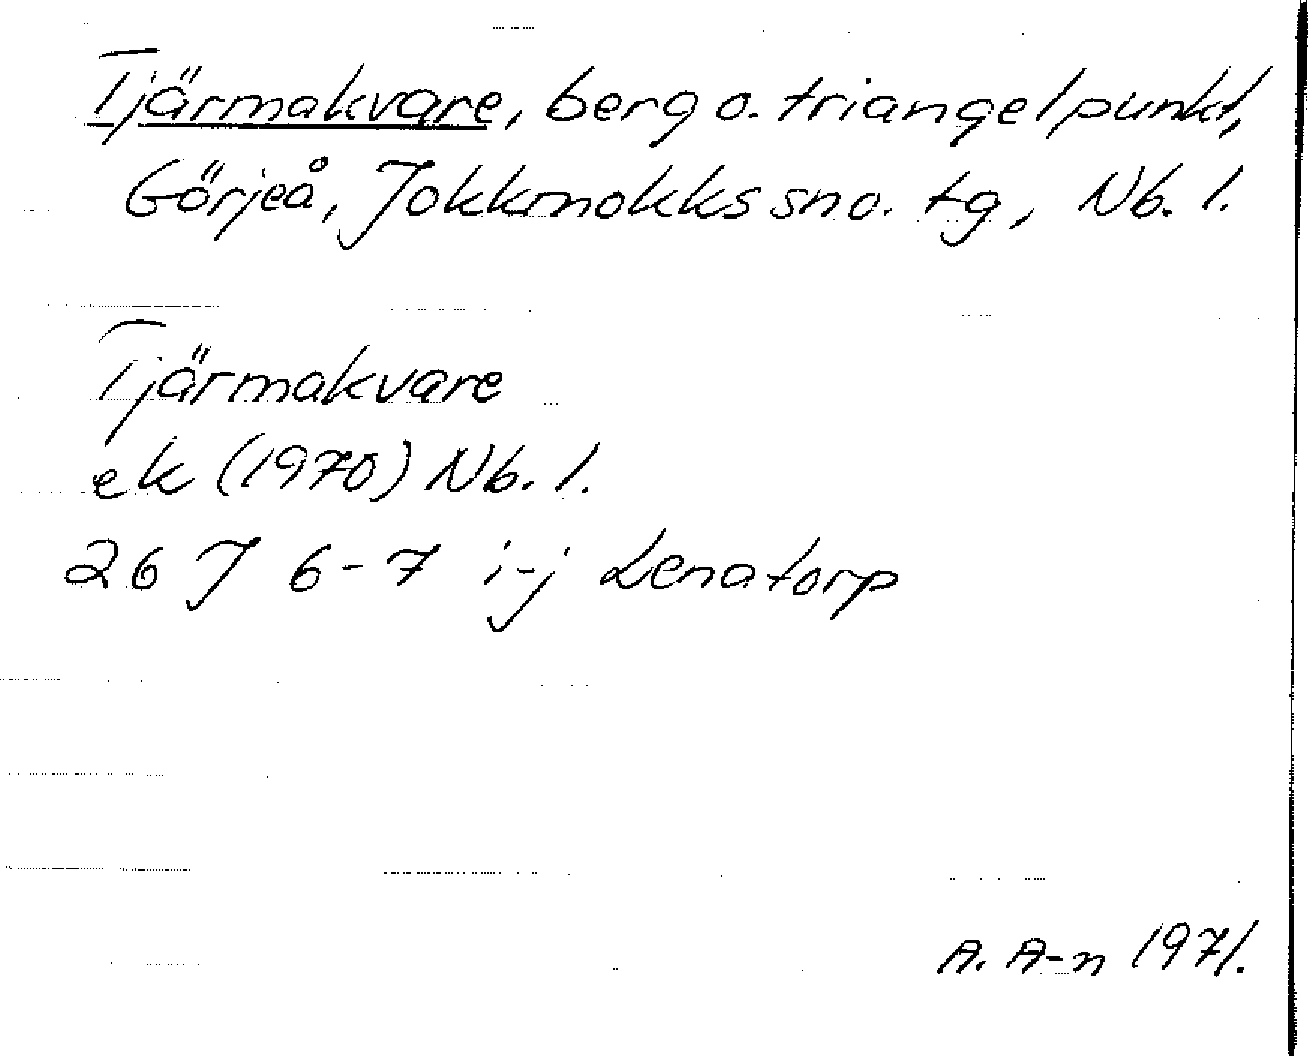 Tjärmakvare, berg o. triangelpunkt,
Görjeå, Jokkmokks sn o. tg, Nb. l.
Tjärmakvare
ek (1970) Nb. l.
26 J 6-7 i-j Lenatorp
A. A-n 1971.